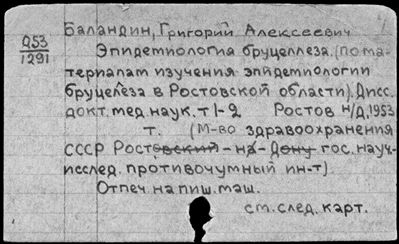 Баландин, Григорий Алексеевич
Д53
1291
Эпидемиология бруцеллеза. (По ма-
териалам изучения эпидемиологии
бруцелеза в Ростовской области). Дисс.
докт. мед. наук. т 1-2 Ростов н/Д, 1953
т. (М-во здравоохранения
СССР Ростовский-на-Дону гос. науч.-
исслед. противочумный ин-т).
Отпеч. на пиш. маш.
см. след. карт.